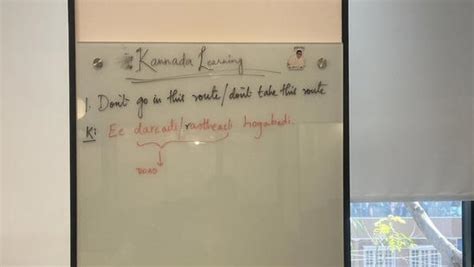 Kannada Learning
1. Don't go in this route/don't take this route
K: Ee darcadi/rastheadi hogabedi.
ROAD